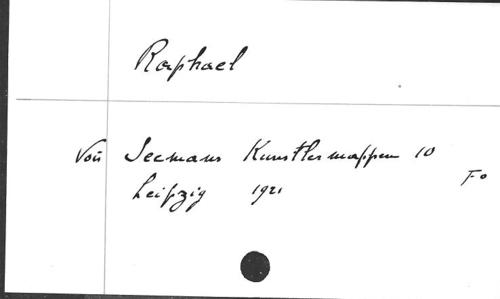 Raphael
Voń Seemans Kunstlermappen 10
Leipzig 1921 Fo